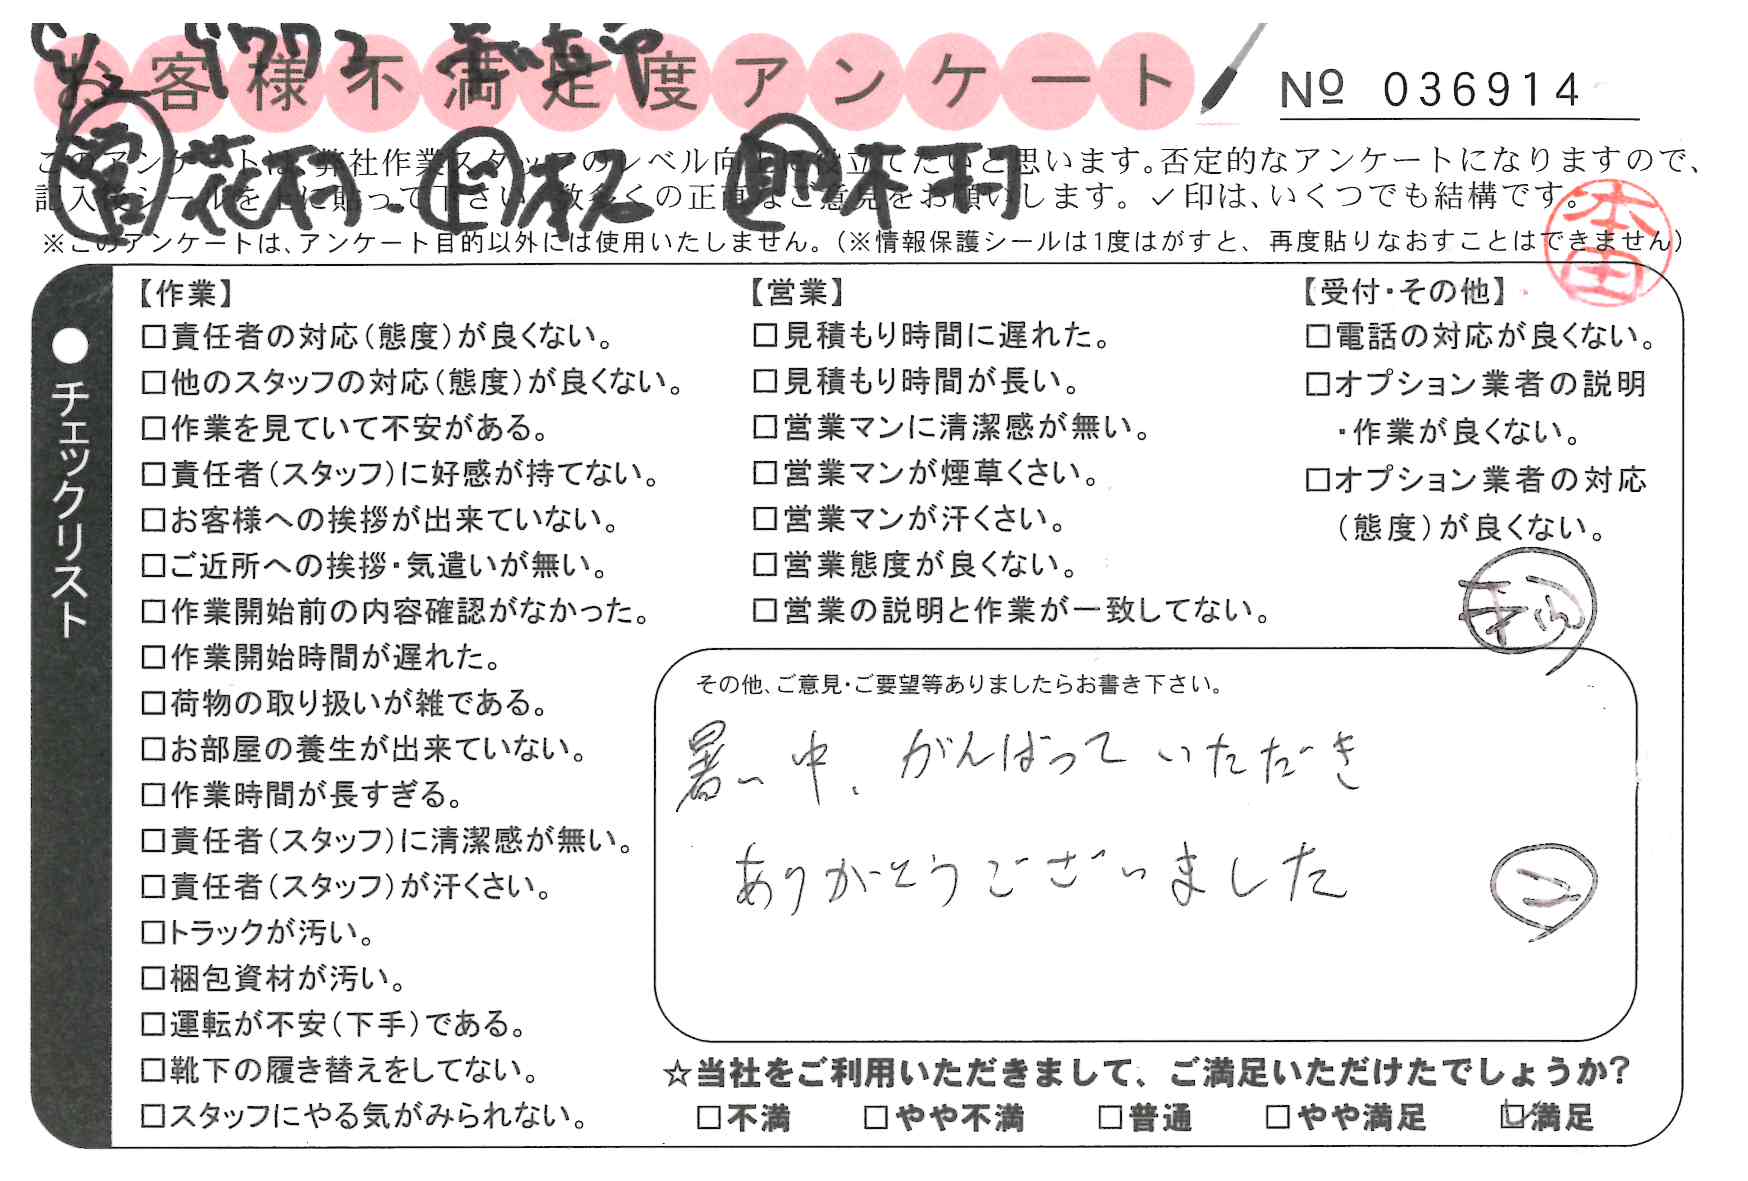 お客様不満足度アンケート
№ 036914
このアンケートは、弊社作業スタッフのレベル向上に役立てたいと思います。否定的なアンケートになりますので、
記入後シールを上に貼って下さい。数多くの正直なご意見をお願いします。✓印は、いくつでも結構です。
※このアンケートは、アンケート目的以外には使用いたしません。（※情報保護シールは1度はがすと、再度貼りなおすことはできません）
営 花村 木村
●チェックリスト
【作業】
□責任者の対応（態度）が良くない。
□他のスタッフの対応（態度）が良くない。
□作業を見ていて不安がある。
□責任者（スタッフ）に好感が持てない。
□お客様への挨拶が出来ていない。
□ご近所への挨拶・気遣いが無い。
□作業開始前の内容確認がなかった。
□作業開始時間が遅れた。
□荷物の取り扱いが雑である。
□お部屋の養生が出来ていない。
□作業時間が長すぎる。
□責任者（スタッフ）に清潔感が無い。
□責任者（スタッフ）が汗くさい。
□トラックが汚い。
□梱包資材が汚い。
□運転が不安（下手）である。
□靴下の履き替えをしてない。
□スタッフにやる気がみられない。
【営業】
□見積もり時間に遅れた。
□見積もり時間が長い。
□営業マンに清潔感が無い。
□営業マンが煙草くさい。
□営業マンが汗くさい。
□営業態度が良くない。
□営業の説明と作業が一致してない。
【受付・その他】
□電話の対応が良くない。
□オプション業者の説明
・作業が良くない。
□オプション業者の対応
（態度）が良くない。
本田
その他、ご意見・ご要望等ありましたらお書き下さい。
暑い中、がんばっていただき
ありがとうございました
☆当社をご利用いただきまして、ご満足いただけたでしょうか？
□不満 □やや不満 □普通 □やや満足 ☑満足